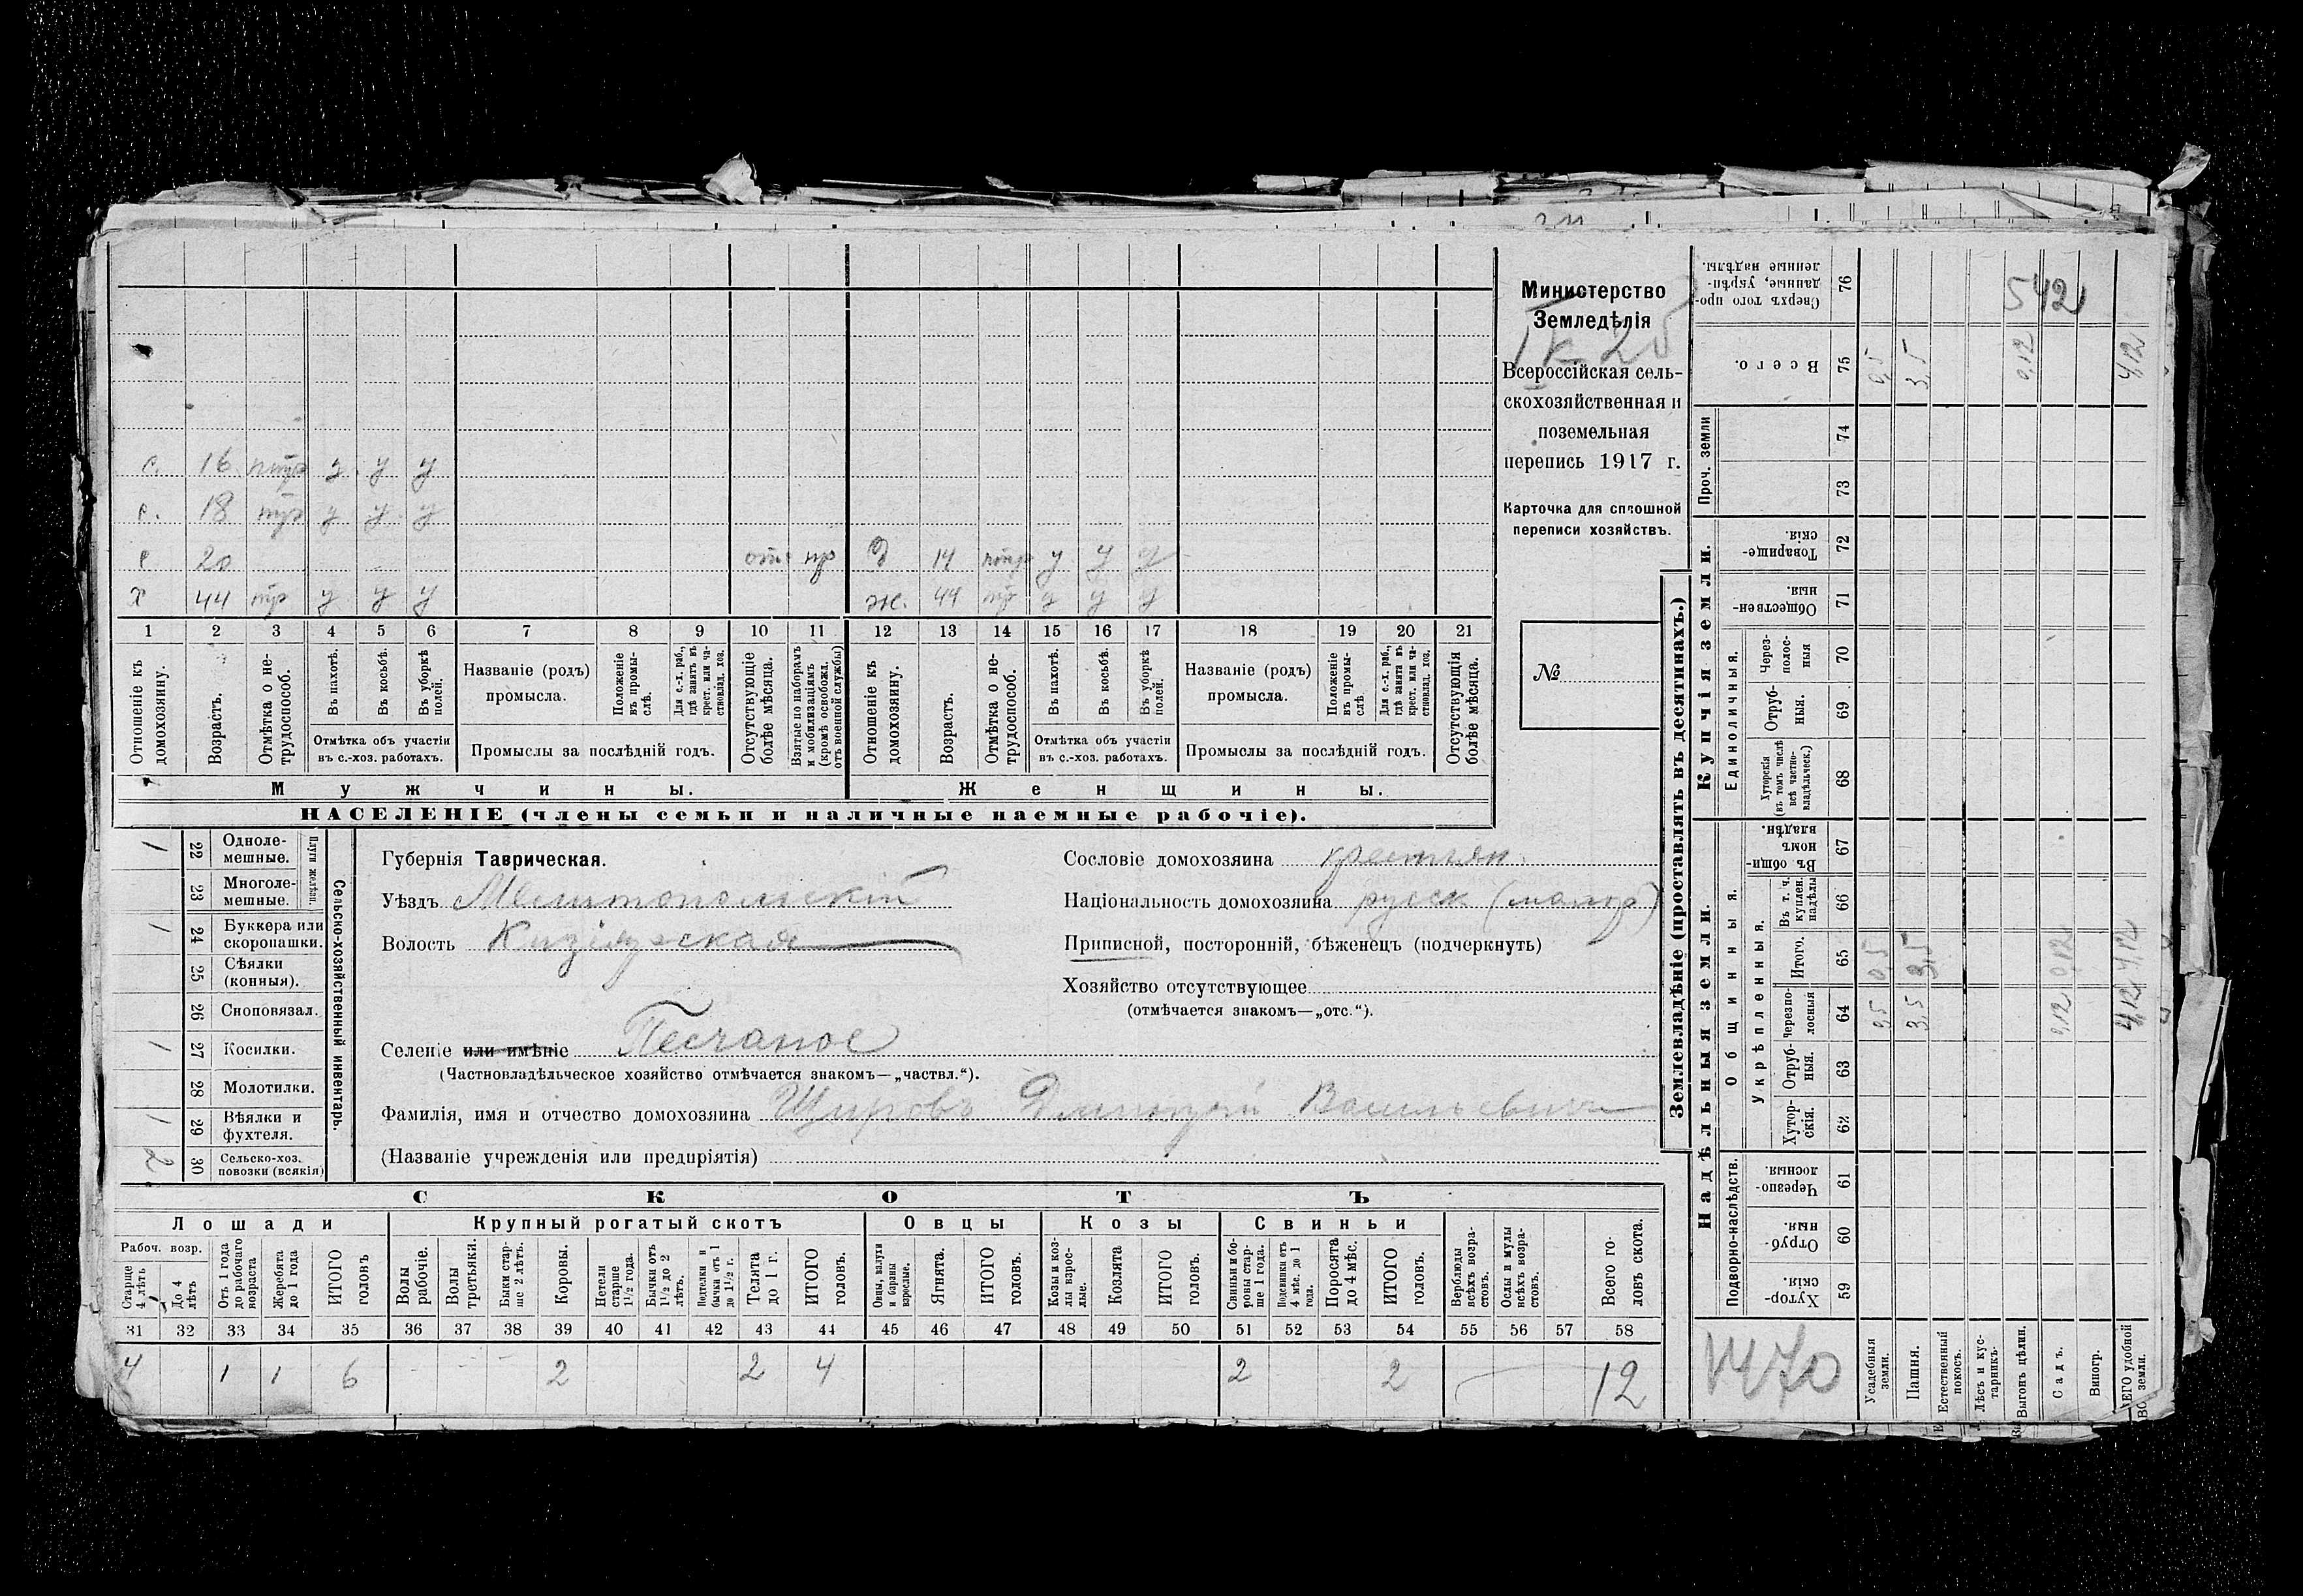 542
Министерство
Земледѣлія
Всероссійская сель-
скохозяйственная и
поземельная
перепись 1917 г.
Карточка для сплошной
переписи хозяйствъ.
№
с. 16 у у
с. 18 у у у
с 20 д 14 у у у
х 44 у у у ж. 44 у у у
1 2 3 4 5 6 7 8 9 10 11 12 13 14 15 16 17 18 19 20 21
Отношеніе къ домохозяину.
Возрастъ.
Отмѣтка о не-трудоспособ.
Въ пахотѣ.
Въ косьбѣ.
Въ уборкѣ полей.
Отмѣтка объ участіи
въ с.-хоз. работахъ.
Названіе (родъ)
промысла.
Положеніе въ промы-слѣ.
Для с.-х. раб., гдѣ занятъ въ крест. или ча-стновлад. хоз.
Промыслы за послѣдній годъ.
Отсутствующіе болѣе мѣсяца.
Взятые по наборамъ и мобилизаціямъ (кромѣ освобожд. отъ военной службы)
Отношеніе къ домохозяину.
Возрастъ.
Отмѣтка о не-трудоспособ.
Въ пахотѣ.
Въ косьбѣ.
Въ уборкѣ полей.
Отмѣтка объ участіи
въ с.-хоз. работахъ.
Названіе (родъ)
промысла.
Положеніе въ промы-слѣ
Для с.-х. раб., гдѣ занята въ крест. или ча-стновлад. хоз.
Промыслы за послѣдній годъ.
Отсутствующія болѣе мѣсяца.
Мужчины. Женщины.
НАСЕЛЕНІЕ (члены семьи и наличные наемные рабочіе).
1 22 Одноле-мешные.
23 Многоле-мешные.
Плуги желѣзн.
1 24 Буккера или скоропашки.
25 Сѣялки (конныя).
26 Сноповязал.
1 27 Косилки.
28 Молотилки.
1 29 Вѣялки и фухтеля.
2 30 Сельско-хоз. повозки (всякія)
Сельско-хозяйственный инвентарь.
Губернія Таврическая.
Уѣздъ Мелитопольскій
Волость Кизіярская
Селеніе или имѣніе Песчаное
(Частновладѣльческое хозяйство отмѣчается знакомъ—„частвл.“).
Фамилія, имя и отчество домохозяина Щировъ Дмитрій Васильевичъ
(Названіе учрежденія или предпріятія)
Сословіе домохозяина крестьян.
Національность домохозяина русск (малор)
Приписной, посторонній, бѣженецъ (подчеркнуть)
Хозяйство отсутствующее
(отмѣчается знакомъ—„отс.“).
СКОТЪ
Лошади Крупный рогатый скотъ Овцы Козы Свиньи
Рабоч. возр.
Старше 4 лѣтъ
До 4 лѣтъ
Отъ 1 года до рабочаго возраста
Жеребята до 1 года
ИТОГО головъ
Волы рабочіе.
Волы третьяки.
Быки стар-ше 2 лѣтъ.
Коровы.
Нетели старше 1 1/2 года.
Бычки отъ 1 1/2 до 2 лѣтъ.
Подтелки и бычки отъ 1 до 1 1/2 г.
Телята до 1 г.
ИТОГО головъ.
Овцы, валухи и бараны взрослые.
Ягнята.
ИТОГО головъ.
Козы и коз-лы взрос-лые.
Козлята
ИТОГО головъ.
Свиньи и бо-ровы стар-ше 1 года.
Подсвинки отъ 4 мѣс. до 1 года.
Поросята до 4 мѣс.
ИТОГО головъ.
Верблюды всѣхъ возра-стовъ.
Ослы и мулы всѣхъ возра-стовъ.
Всего го-ловъ скота.
31 32 33 34 35 36 37 38 39 40 41 42 43 44 45 46 47 48 49 50 51 52 53 54 55 56 57 58
4 1 1 6 2 2 4 2 2 12
Землевладѣніе (проставлять въ десятинахъ.)
Надѣльныя земли. Купчія земли.
Подворно-наслѣдств.
Общинныя.
Укрѣпленныя.
Единоличныя.
Проч. земли
Сверхъ того про-данные, укрѣп-ленные надѣлы. 76
Всего. 75 0,5 3,5 0,12 4,12
74
73
Товарище-скія. 72
Обществен-ныя. 71
Через-полос-ныя 70
Отруб-ныя. 69
Хуторскія (въ томъ числѣ всѣ частно-владѣльческ.) 68
Въ общин-номъ владѣн. 67
Въ т. ч. куплен. надѣлы 66
Итого. 65 0,5 3,5 0,12 4,12
Черезпо-лосныя 64 0,5 3,5 0,12 4,12
Отруб-ныя. 63
Хутор-скія. 62
Черезпо-лосныя. 61
Отруб-ныя. 60
Хутор-скія. 59
Усадебныя земли.
Пашня.
Естественный покосъ.
Лѣсъ и кус-тарникъ.
Выгонъ цѣлин.
Садъ.
Виногр.
ВСЕГО удобной земли.